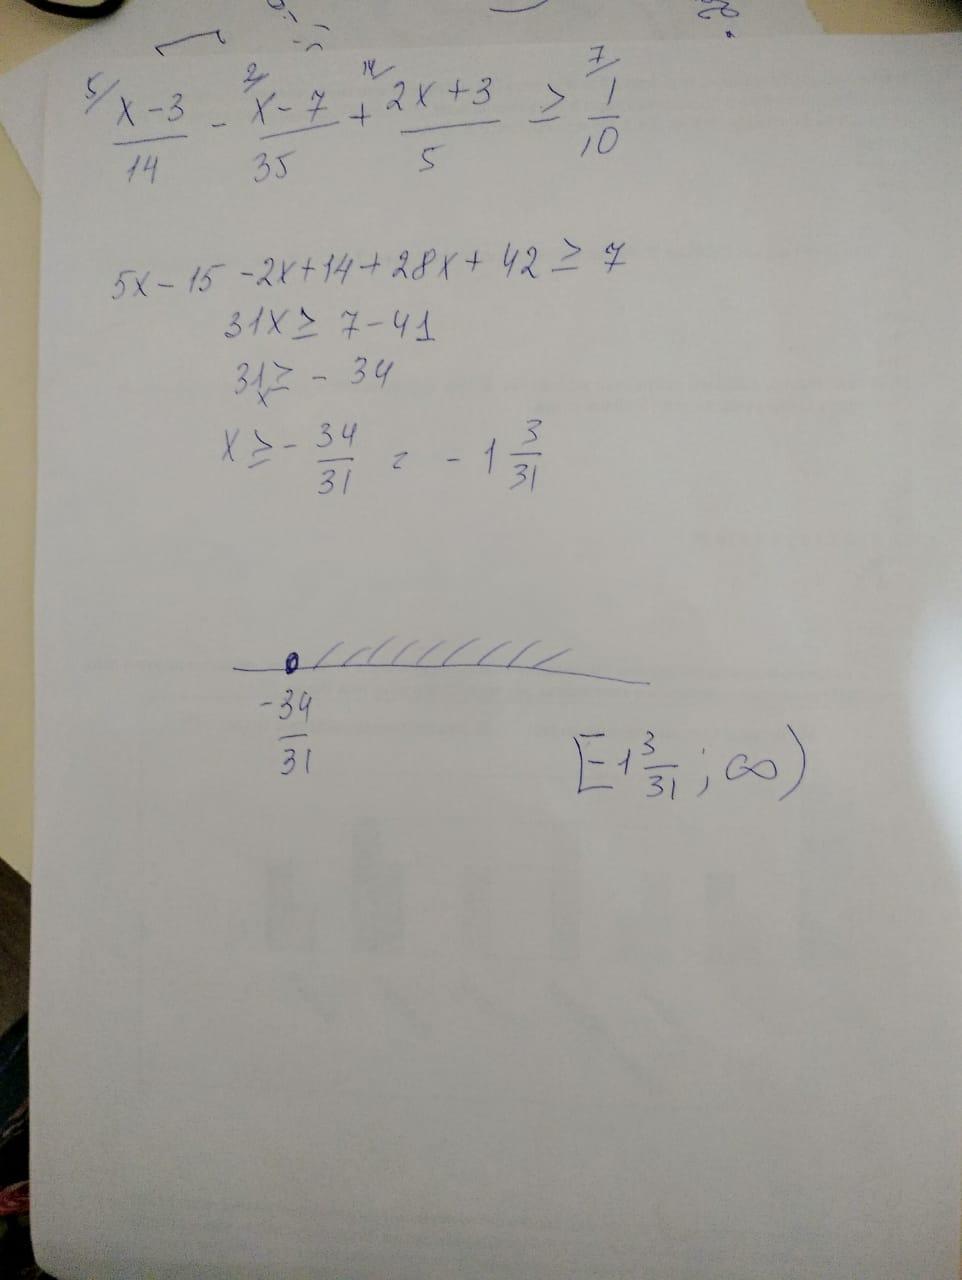 5/ 2/ 14/ 7/
x-3 - x-7 + 2x+3 ≥ 1
14 35 5 10
5x-15-2x+14+28x+42 ≥ 7
31x ≥ 7-41
31x ≥ -34
x ≥ - 34/31 = - 1 3/31
-34
31
[-1 3/31 ; ∞)